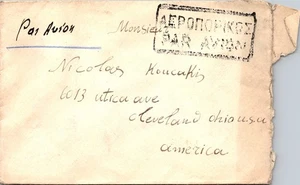 Par Avion
Monsieur
ΑΕΡΟΠΟΡΙΚΩΣ
PAR AVION
Nicolas Koucakis
6013 utica ave
cleveland ohio usa
america